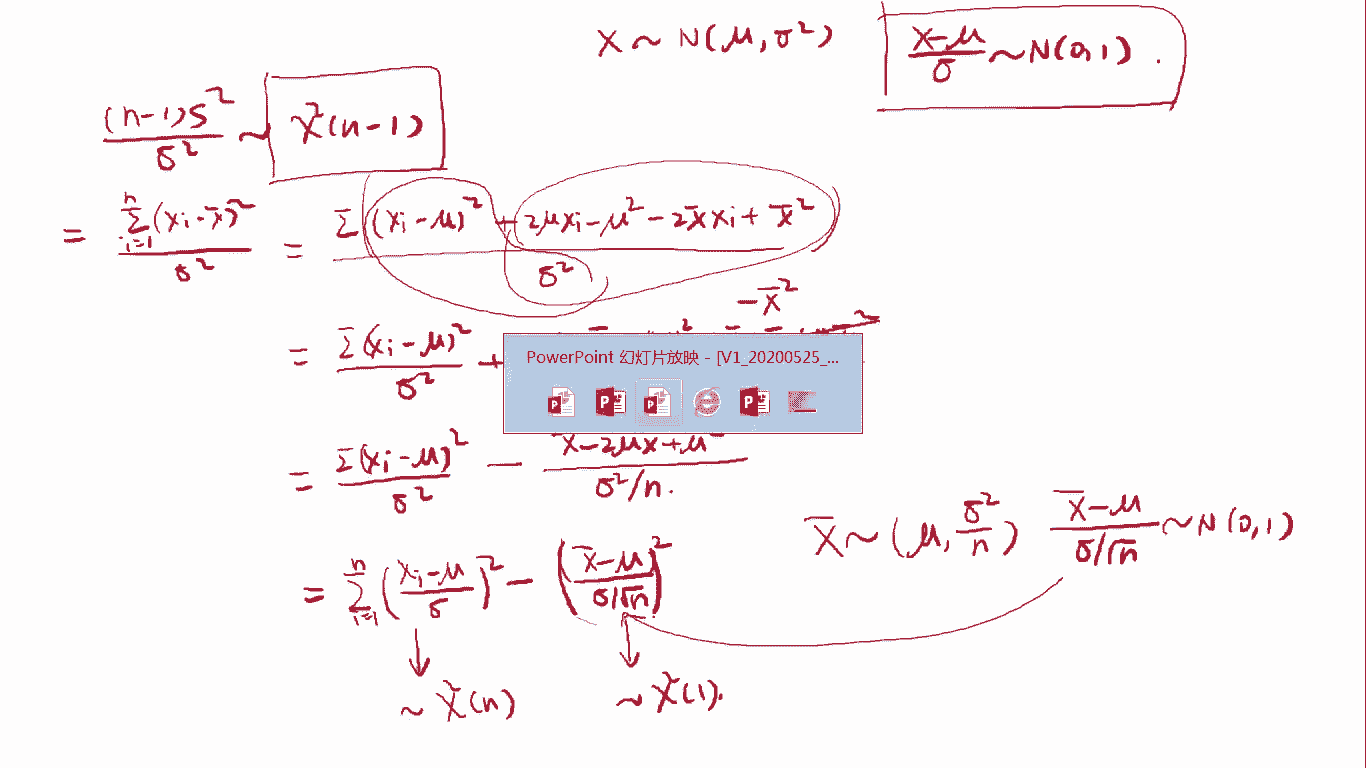 X ~ N(μ, σ²)
(X-μ)/σ ~ N(0,1).
(n-1)S²/σ² ~ χ²(n-1)
= Σ_{i=1}^{n}(xi-x̄)²/σ² = Σ(xi-μ)²+2μxi-μ²-2x̄xi+x̄²/σ²
-x̄²
= Σ(xi-μ)²/σ² +
PowerPoint 幻灯片放映 - [V1_20200525_...
= Σ(xi-μ)²/σ² - x̄-2μx+μ²/σ²/n.
X̄ ~ (μ, σ²/n) (X̄-μ)/(σ/√n) ~ N(0,1)
= Σ_{i=1}^{n}((xi-μ)/σ)² - ((x̄-μ)/(σ/√n))²
~ χ²(n) ~ χ²(1).